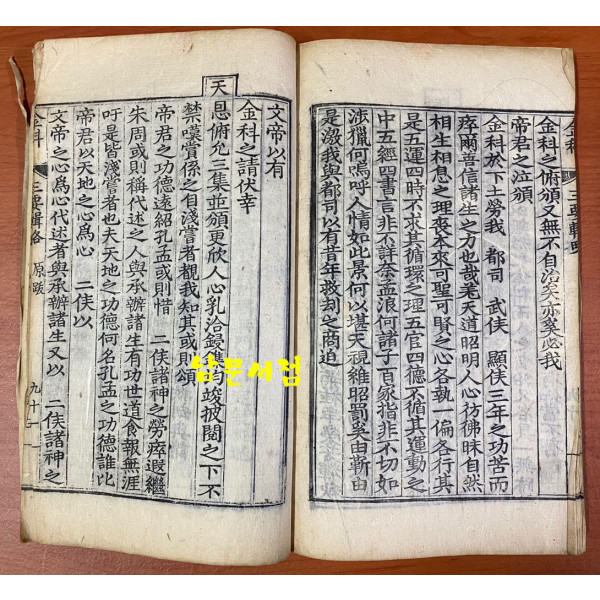 金科 三要輯略
金科之俯頒又無不自治矣亦冀必我
帝君之泣頒
金科於下士勞我 都司 武侯 顯侯三年之功苦而
瘁爾善信諸生之力也哉㞐天道昭明人心彷彿昧自然
相生相息之理喪本來可聖可賢之心各執一偏各行其
是五運四時不求其循環之理五官四德不循其運動之
中五經四書言非不詳奈孟浪何諸子百家指非不切如
涉獵何嗚呼人情如此景何以堪天視維昭罰奚由靳由
是激我與都司以有昔年救劫之商迫
文帝以有
金科之請伏幸
天
恩俯允三集並頒更欣人心乳洽鋟雋均竣披閱之下不
禁嘆賞係之自淺嘗者觀我知其或則頌
帝君之功德遠紹孔孟或則惜 二侯諸神之勞瘁遐繼
朱周或則稱代述之人與承辦諸生有功世道食報無涯
吁是皆淺嘗者也夫天地之功德何名孔孟之功德誰比
帝君以天地之心爲心 二侯以
文帝之心爲心代述者與承辦諸生又以 二侯諸神之
金科 三要輯略 原跋 九十一
남문서점